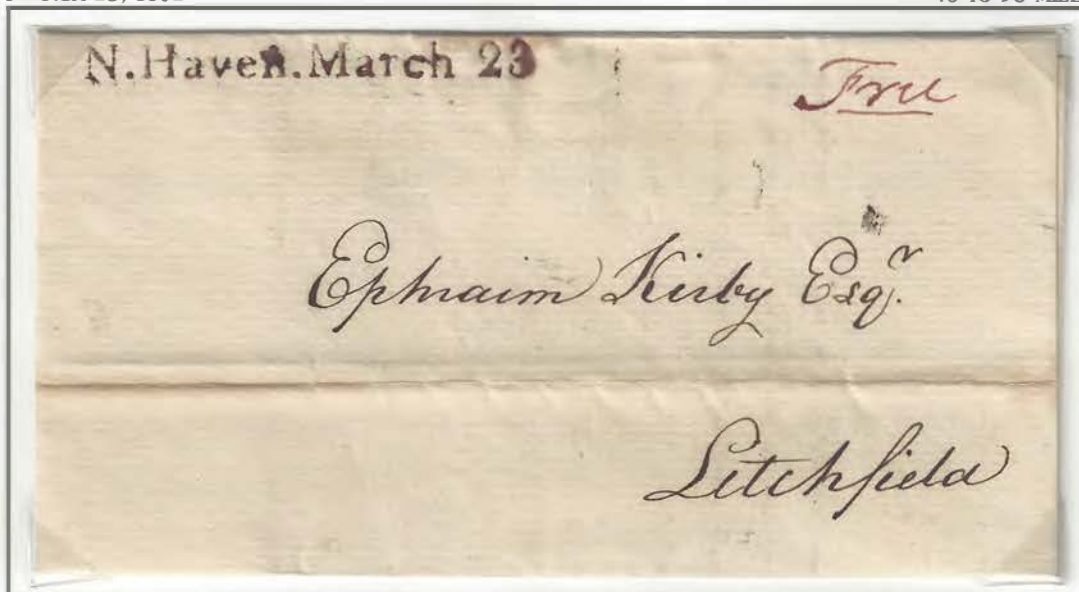 N.Haven.March 23
Free
Ephraim Kirby Esqr.
Litchfield